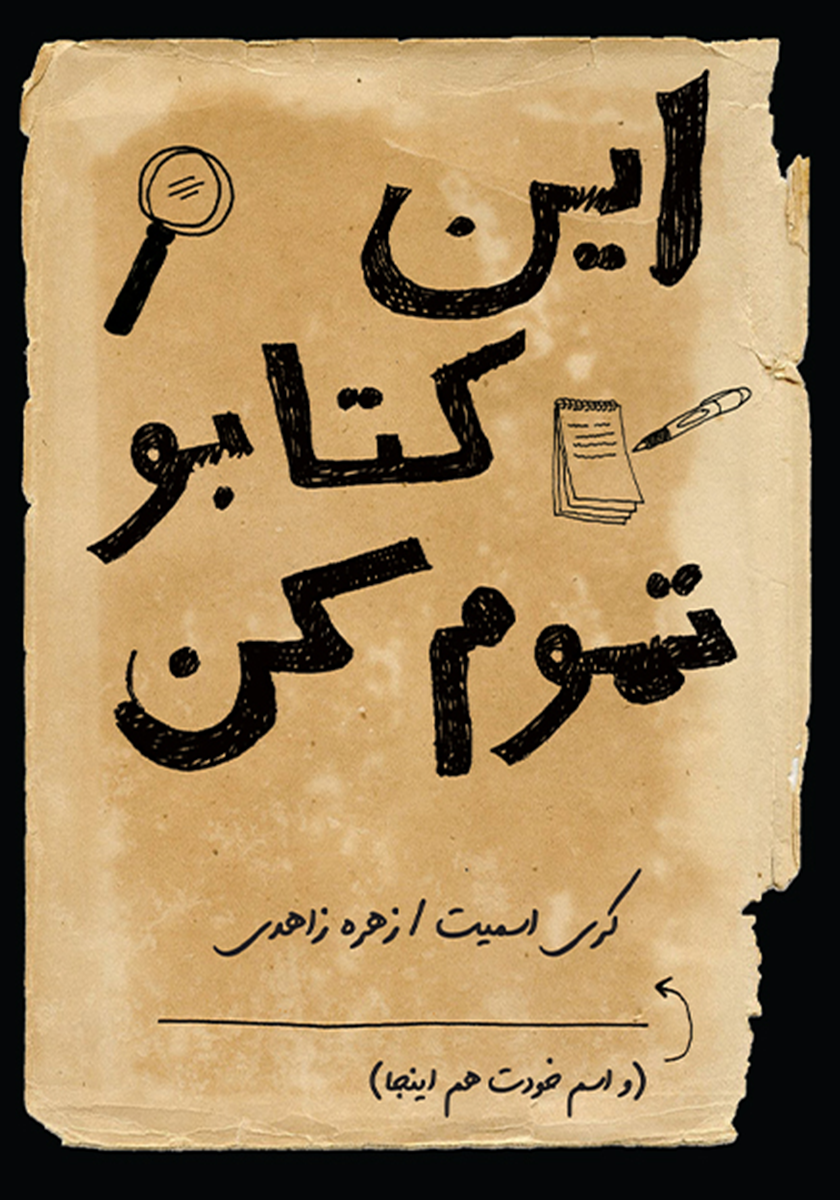 این
کتابو
تموم کن
کری اسمیت / زهره زاهدی
(و اسم خودت هم اینجا)